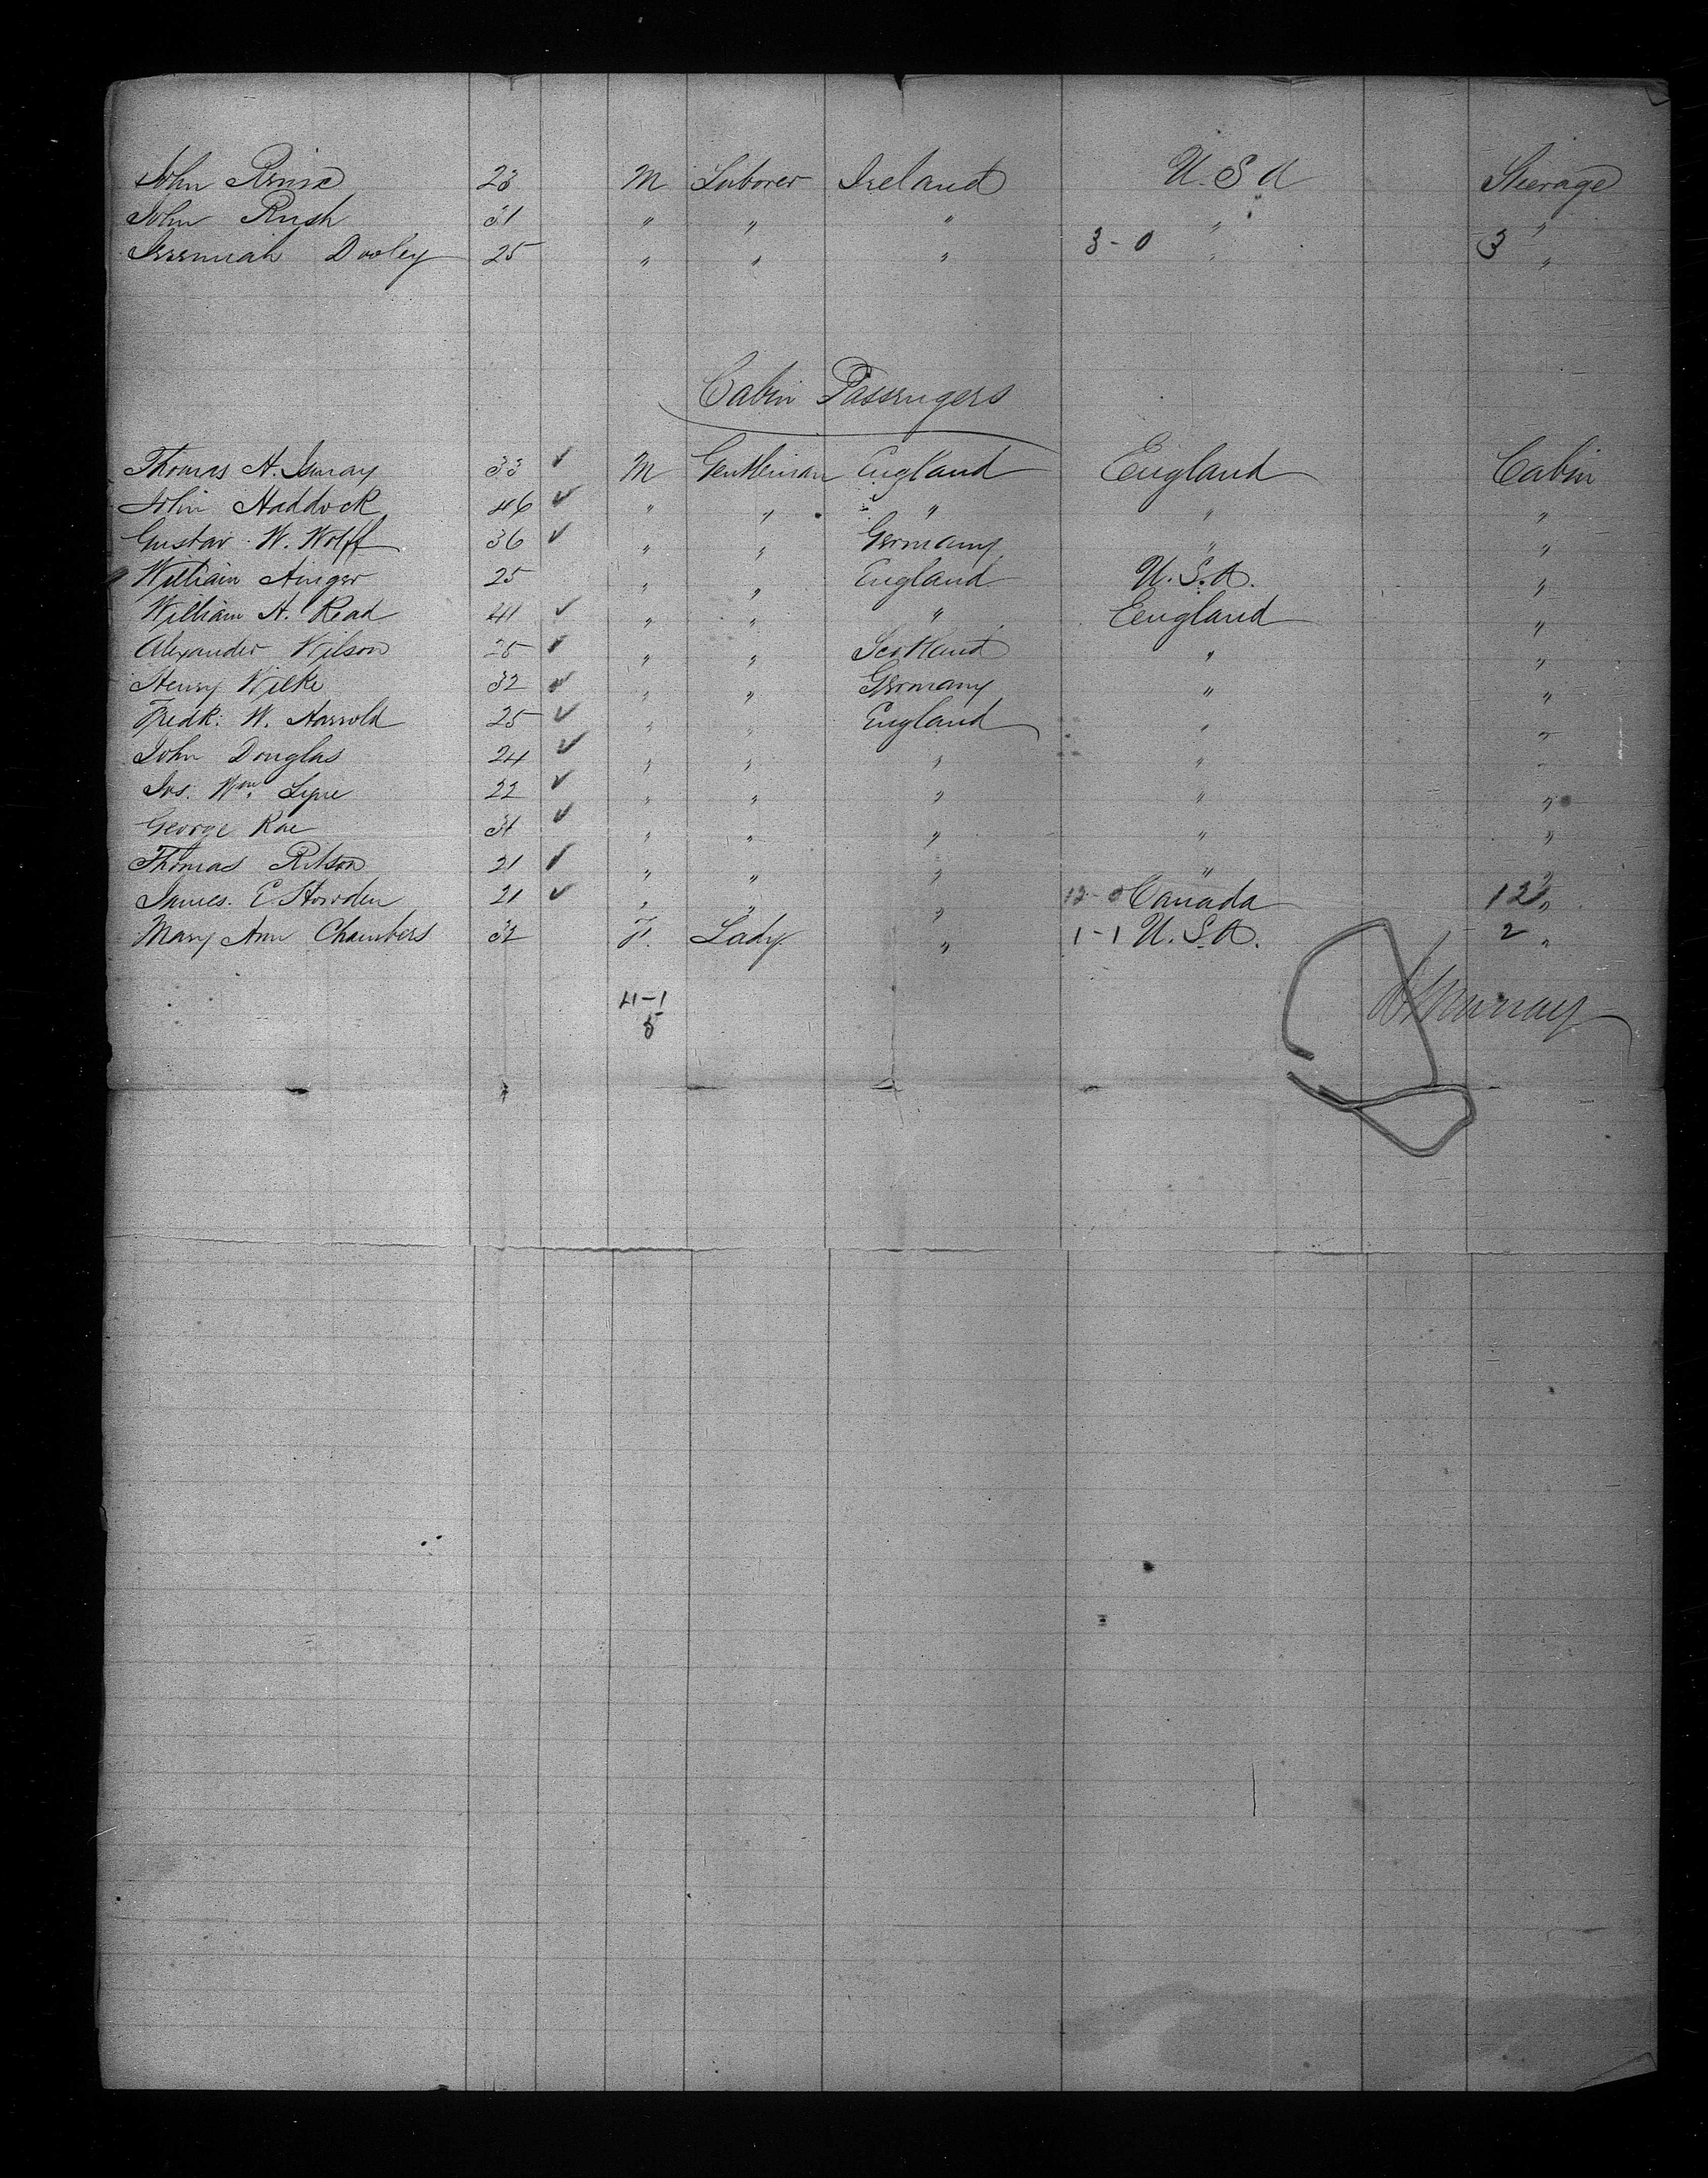 John 23 M Laborer Ireland U.S.A Steerage
John Rush 31 " " " " "
Jeremiah Dooley 25 " " " 3-0 " 3 "
Cabin Passengers
Thomas H. Ismay 33 ✓ M Gentleman England England Cabin
John Haddock 46 ✓ " " " " "
Gustav W. Wolff 36 ✓ " " Germany " "
William Ainger 25 " " England U.S.A. "
William H. Read 41 ✓ " " " England "
Alexander Wilson 25 ✓ " " Scotland " "
Henry Wilke 32 ✓ " " Germany " "
Fredk: W. Harrold 25 ✓ " " England " "
John Douglas 24 ✓ " " " " "
Jos. Wm. 22 ✓ " " " " "
George Rae 31 ✓ " " " " "
Thomas Ritson 21 ✓ " " " " "
James. E. 21 ✓ " " " 12-0 Canada 12 "
Mary Ann Chambers 32 F. Lady " 1-1 U.S.A. 2 "
4-1
5
Murray